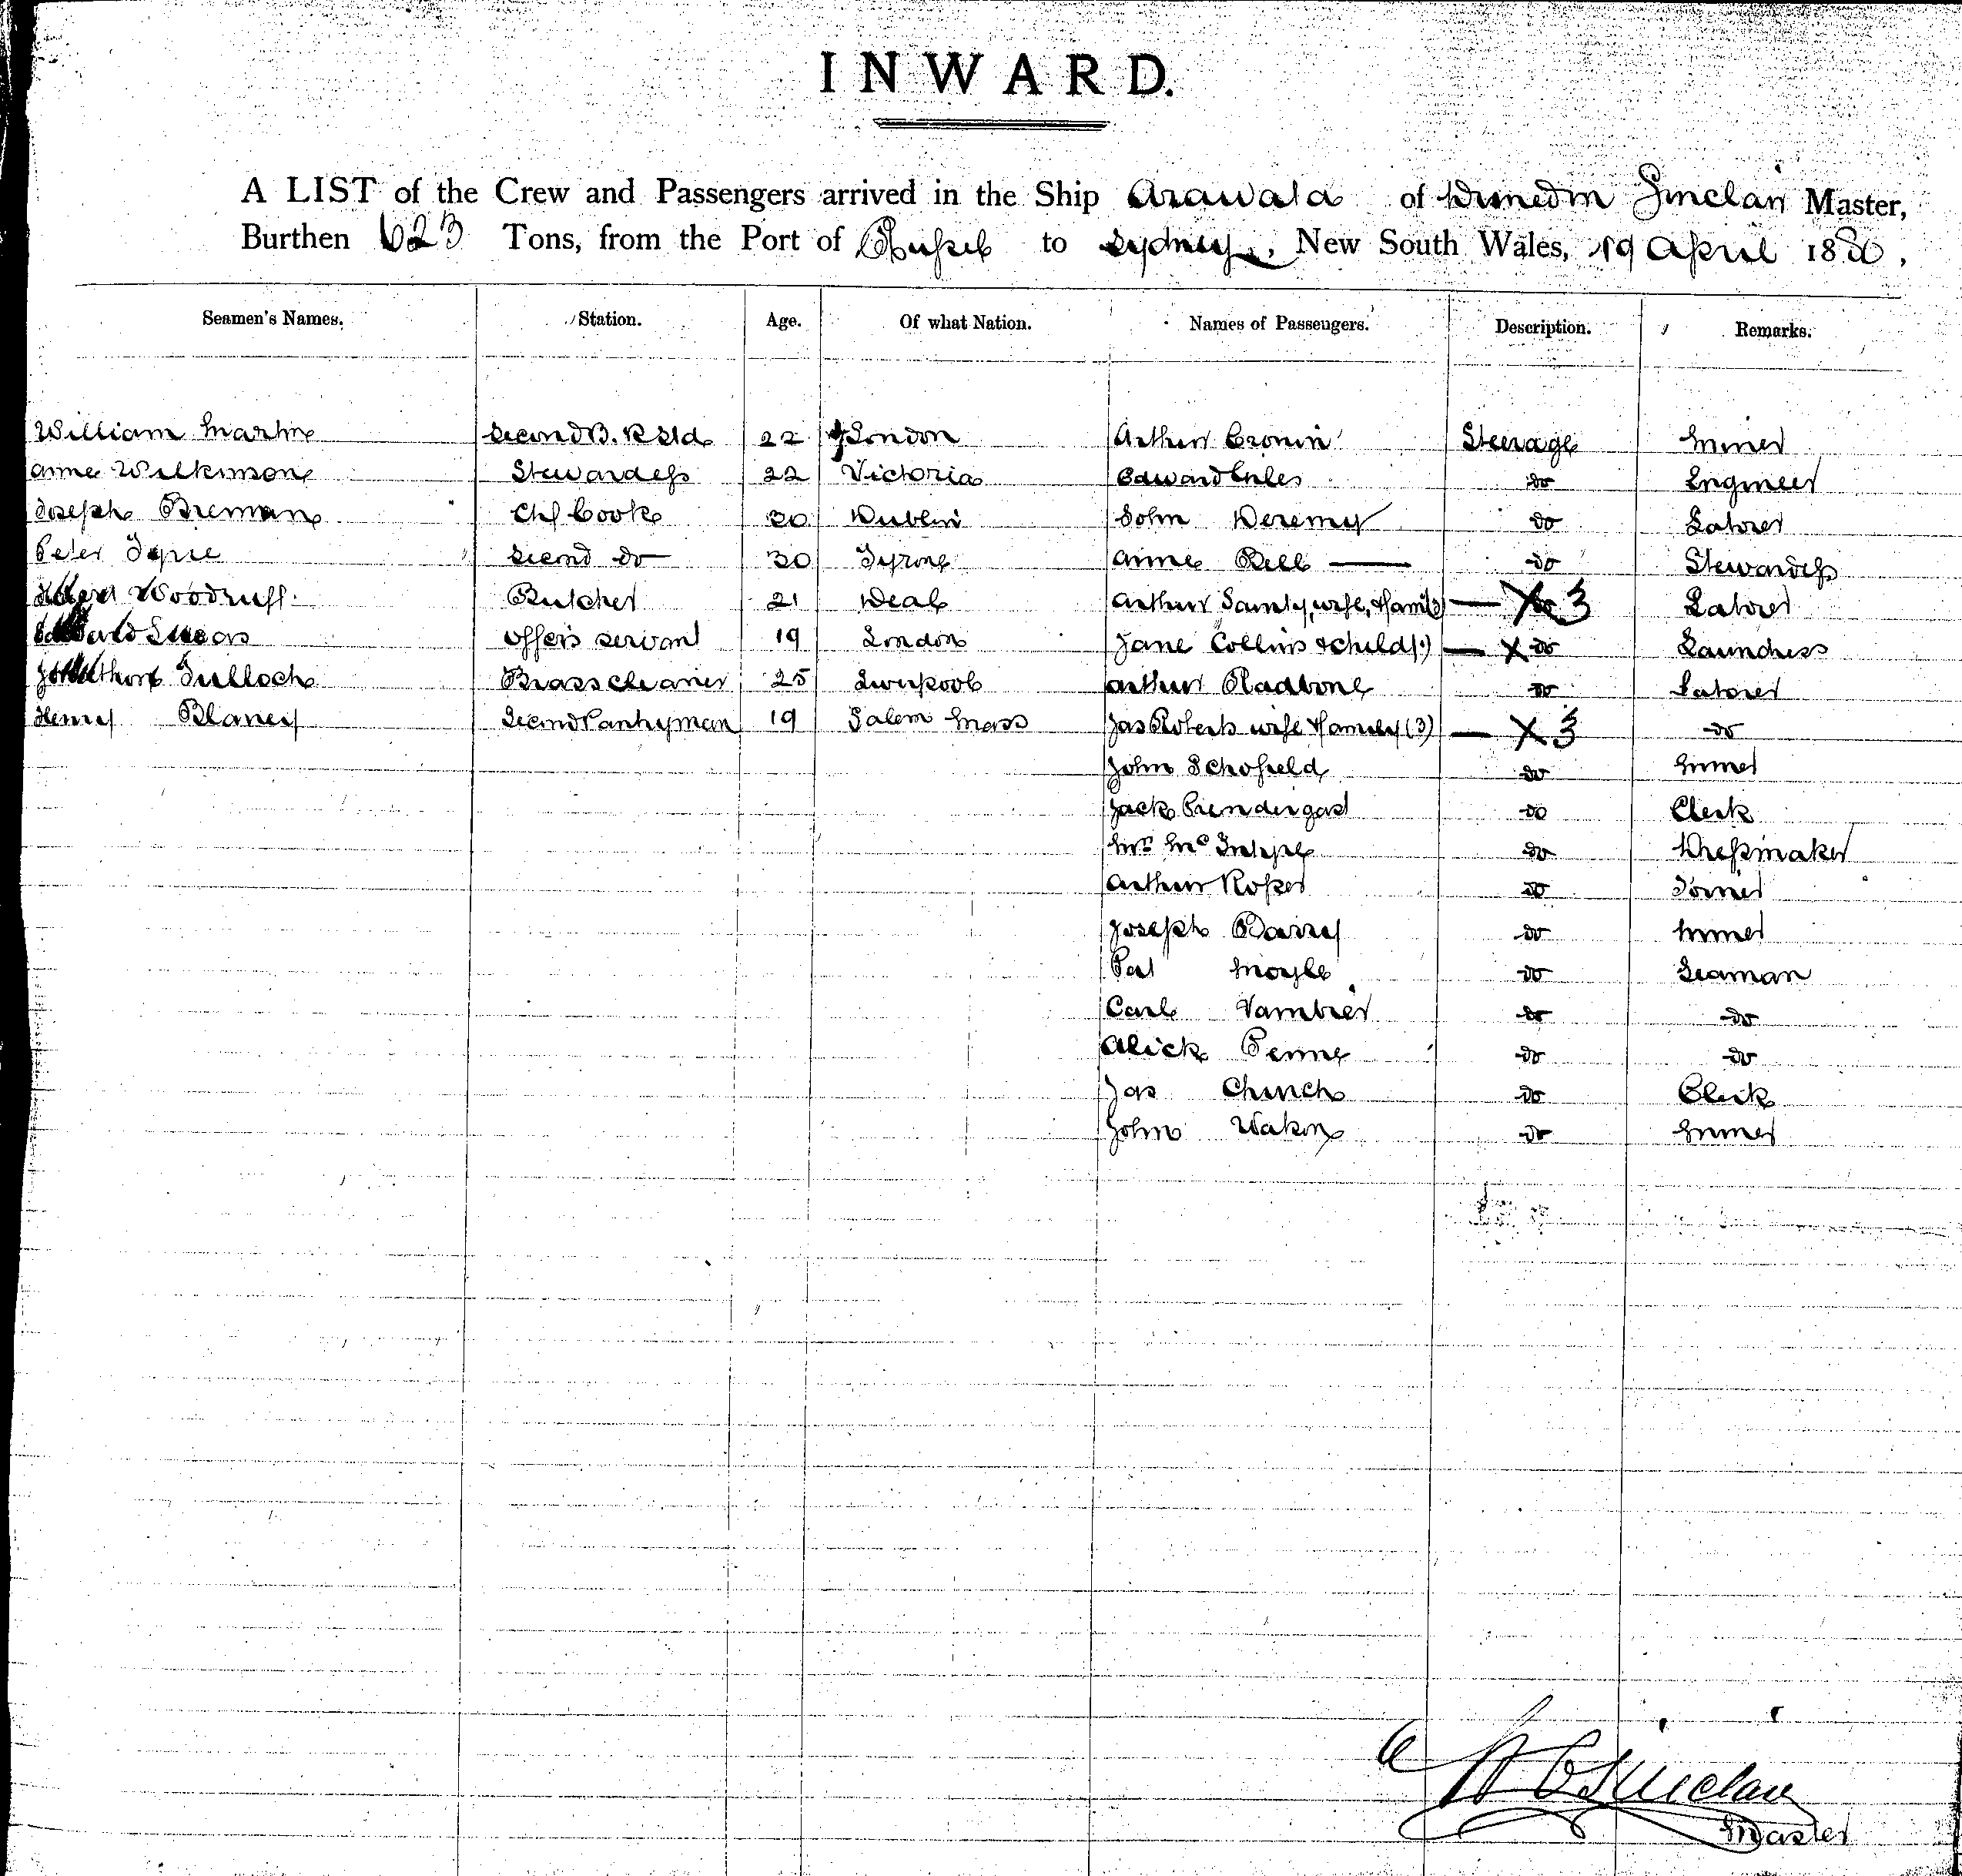 INWARD.
A LIST of the Crew and Passengers arrived in the Ship Arawata of Dunedin Sinclair Master,
Burthen 623 Tons, from the Port of to Sydney, New South Wales, 19 April 1880,
Seamen's Names. Station. Age. Of what Nation. Names of Passengers. Description. Remarks.
William Martin Second B. R Std 22 London Arthur Cronin Steerage Miner
Anne Wilkinson Stewardess 22 Victoria Edward do Engineer
Joseph Brennan Chf Cook 30 Dublin John Deremy do Labrer
Peter Second do 30 Tyrone Anne Bell do Stewardess
Woodruff Butcher 21 Deal Arthur wife, & fam (3) X do 3 Labrer
Lucas Offers servant 19 London Jane Collins & child (1) X do Laundress
Tulloch Brass cleaner 25 Liverpool Arthur Radbone do Labrer
Henry Blaney Second Pantryman 19 Salem Mass Jas Roberts wife & family (3) X 3 do
John Schofield do Miner
Jack Prendergast do Clerk
Mrs Mc do Dressmaker
Arthur Roper do Joiner
Joseph Barry do Miner
Pat Moyle do Seaman
Carl Vambrer do do
Alick Penne do do
Jas Church do Clerk
John Wakin do Miner
Sinclair
Master